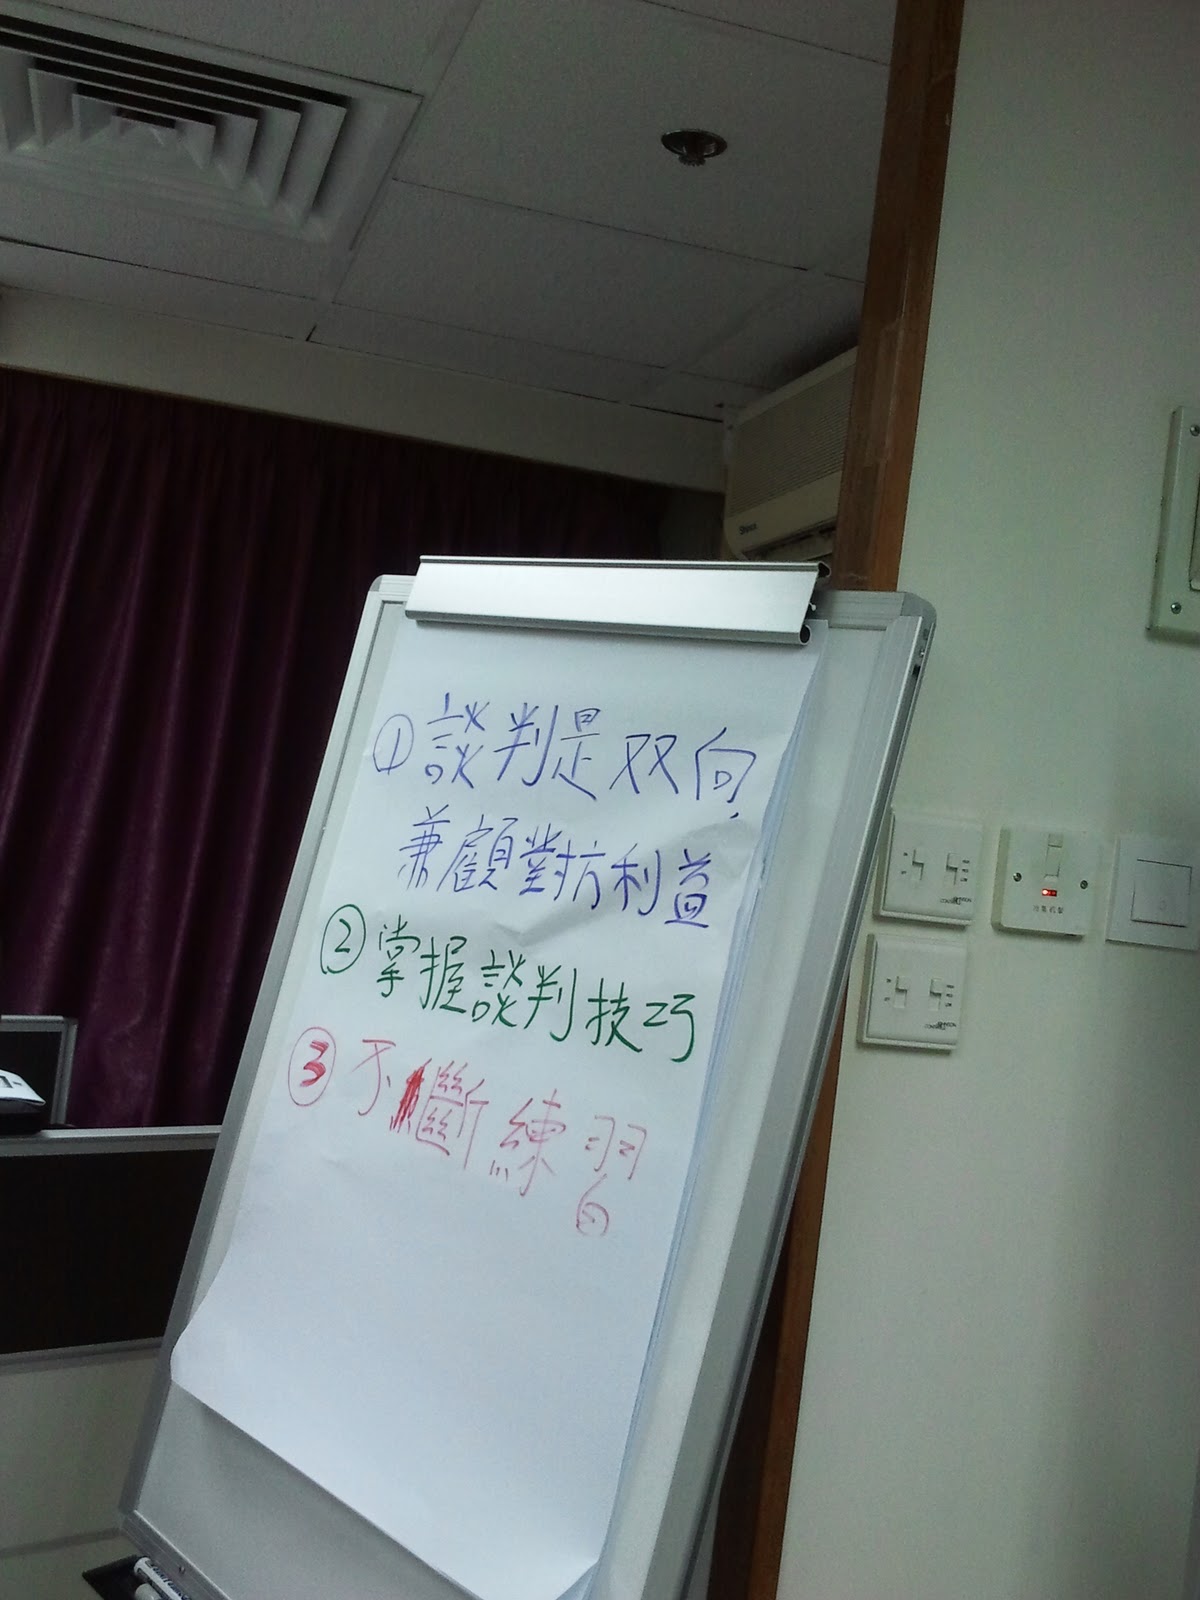 ①談判是双向,
兼顧對方利益
②掌握談判技巧
③不斷練習